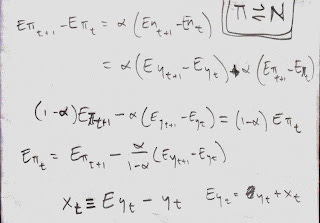 π ⇄ N
Eπ_{t+1} - Eπ_t = α (En_{t+1} - En_t)
= α (Ey_{t+1} - Ey_t) + α (Eπ_{t+1} - Eπ_t)
(1-α) Eπ_{t+1} - α (Ey_{t+1} - Ey_t) = (1-α) Eπ_t
Eπ_t = Eπ_{t+1} - α/(1-α) (Ey_{t+1} - Ey_t)
x_t ≡ Ey_t - y_t Ey_t = y_t + x_t